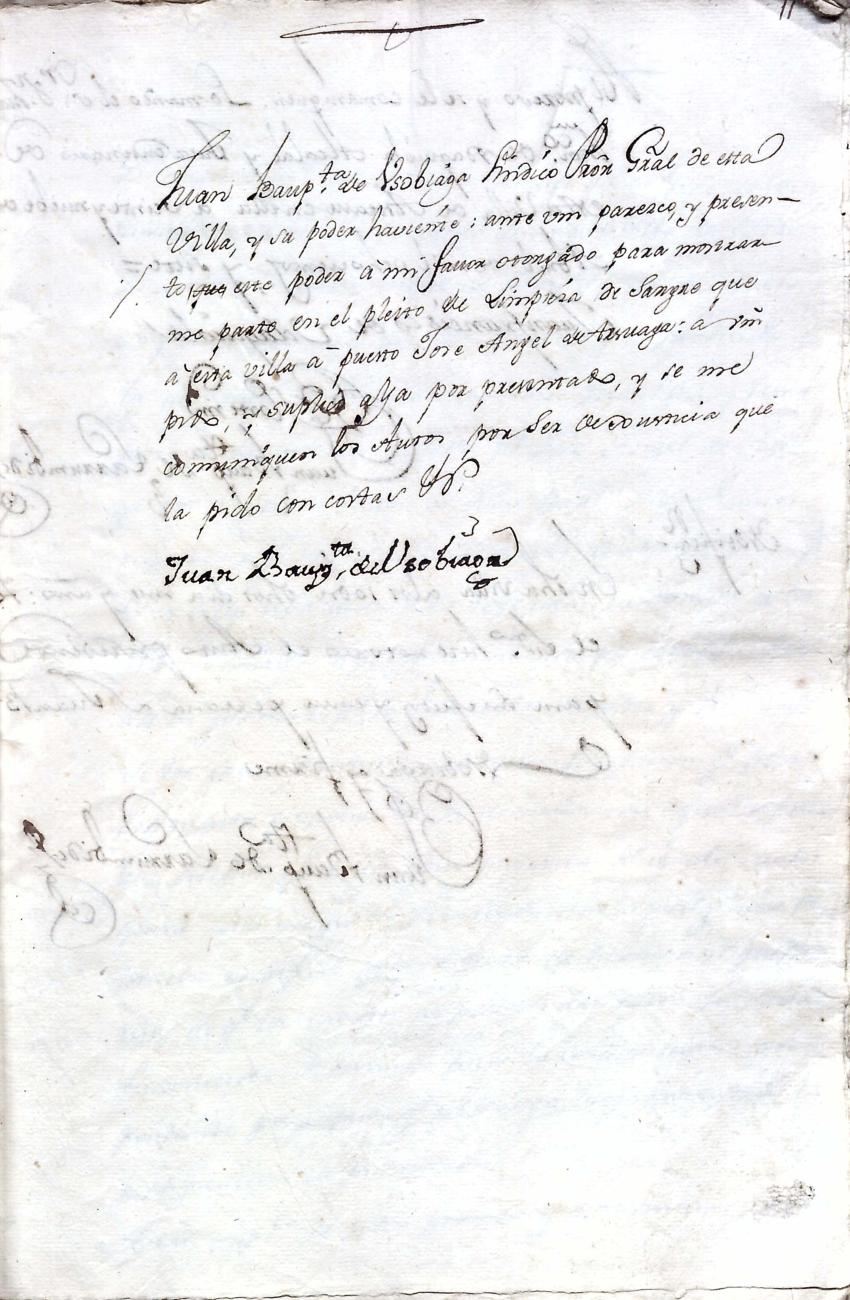 11
Juan Baup.ta de Vsobiaga Sindico Pror Gral de esta
Villa, y su poder haviente: ante vm parezco, y presen-
to este poder à mi favor otorgado para mostrar
me parte en el pleito de Limpieza de Sangre que
à esta villa à puesto Jose Angel de Arsuaga: à vm
pido, y suplico aya por presentado, y se me
comuniquen los Autos, por ser de Justicia que
la pido con costas &a
Juan Baup.ta de Vsobiaga